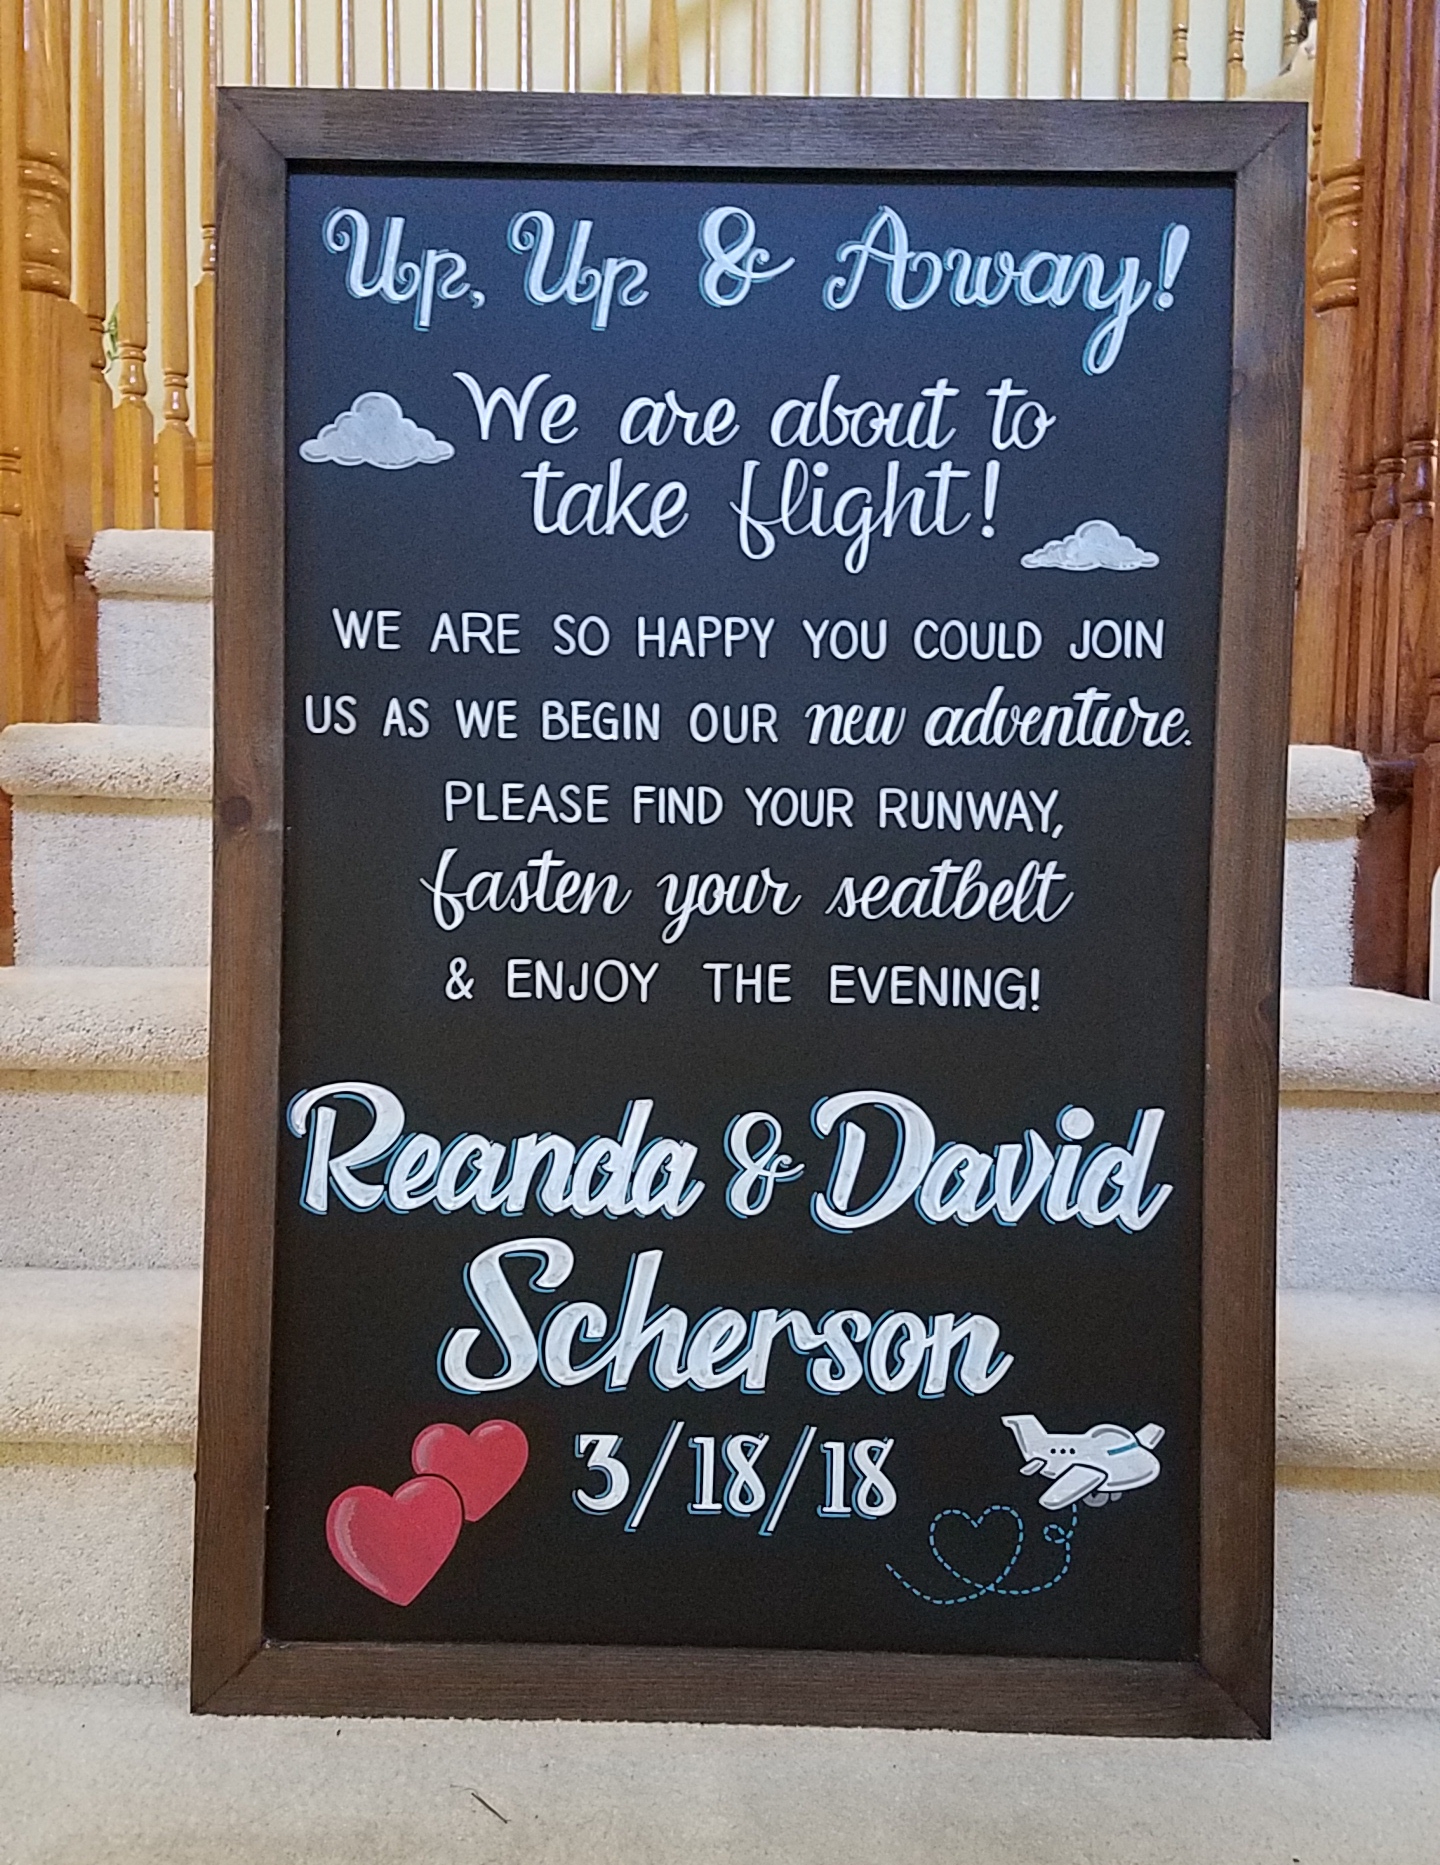 Up, Up & Away!
We are about to
take flight!
WE ARE SO HAPPY YOU COULD JOIN
US AS WE BEGIN OUR new adventure.
PLEASE FIND YOUR RUNWAY,
fasten your seatbelt
& ENJOY THE EVENING!
Reanda & David
Scherson
3/18/18